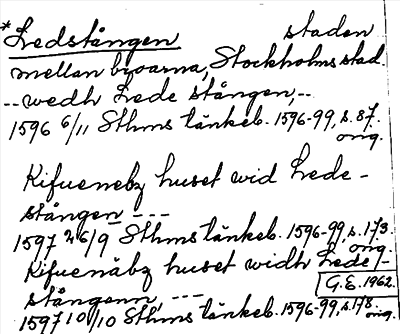 *Ledstången staden
mellan broarna, Stockholms stad.
-- wedh Lede stången, --
1596 6/11 Sthms tänkeb. 1596-99, s. 87.
orig.
Kifueneby huset wid Lede-
stången ---
1597 26/9 Sthms tänkeb. 1596-99, s. 173.
orig.
Kifuenäby huset widh Lede-
stångenn, ---
G.E. 1962.
1597 10/10 Sthms tänkeb. 1596-99, s. 178.
orig.